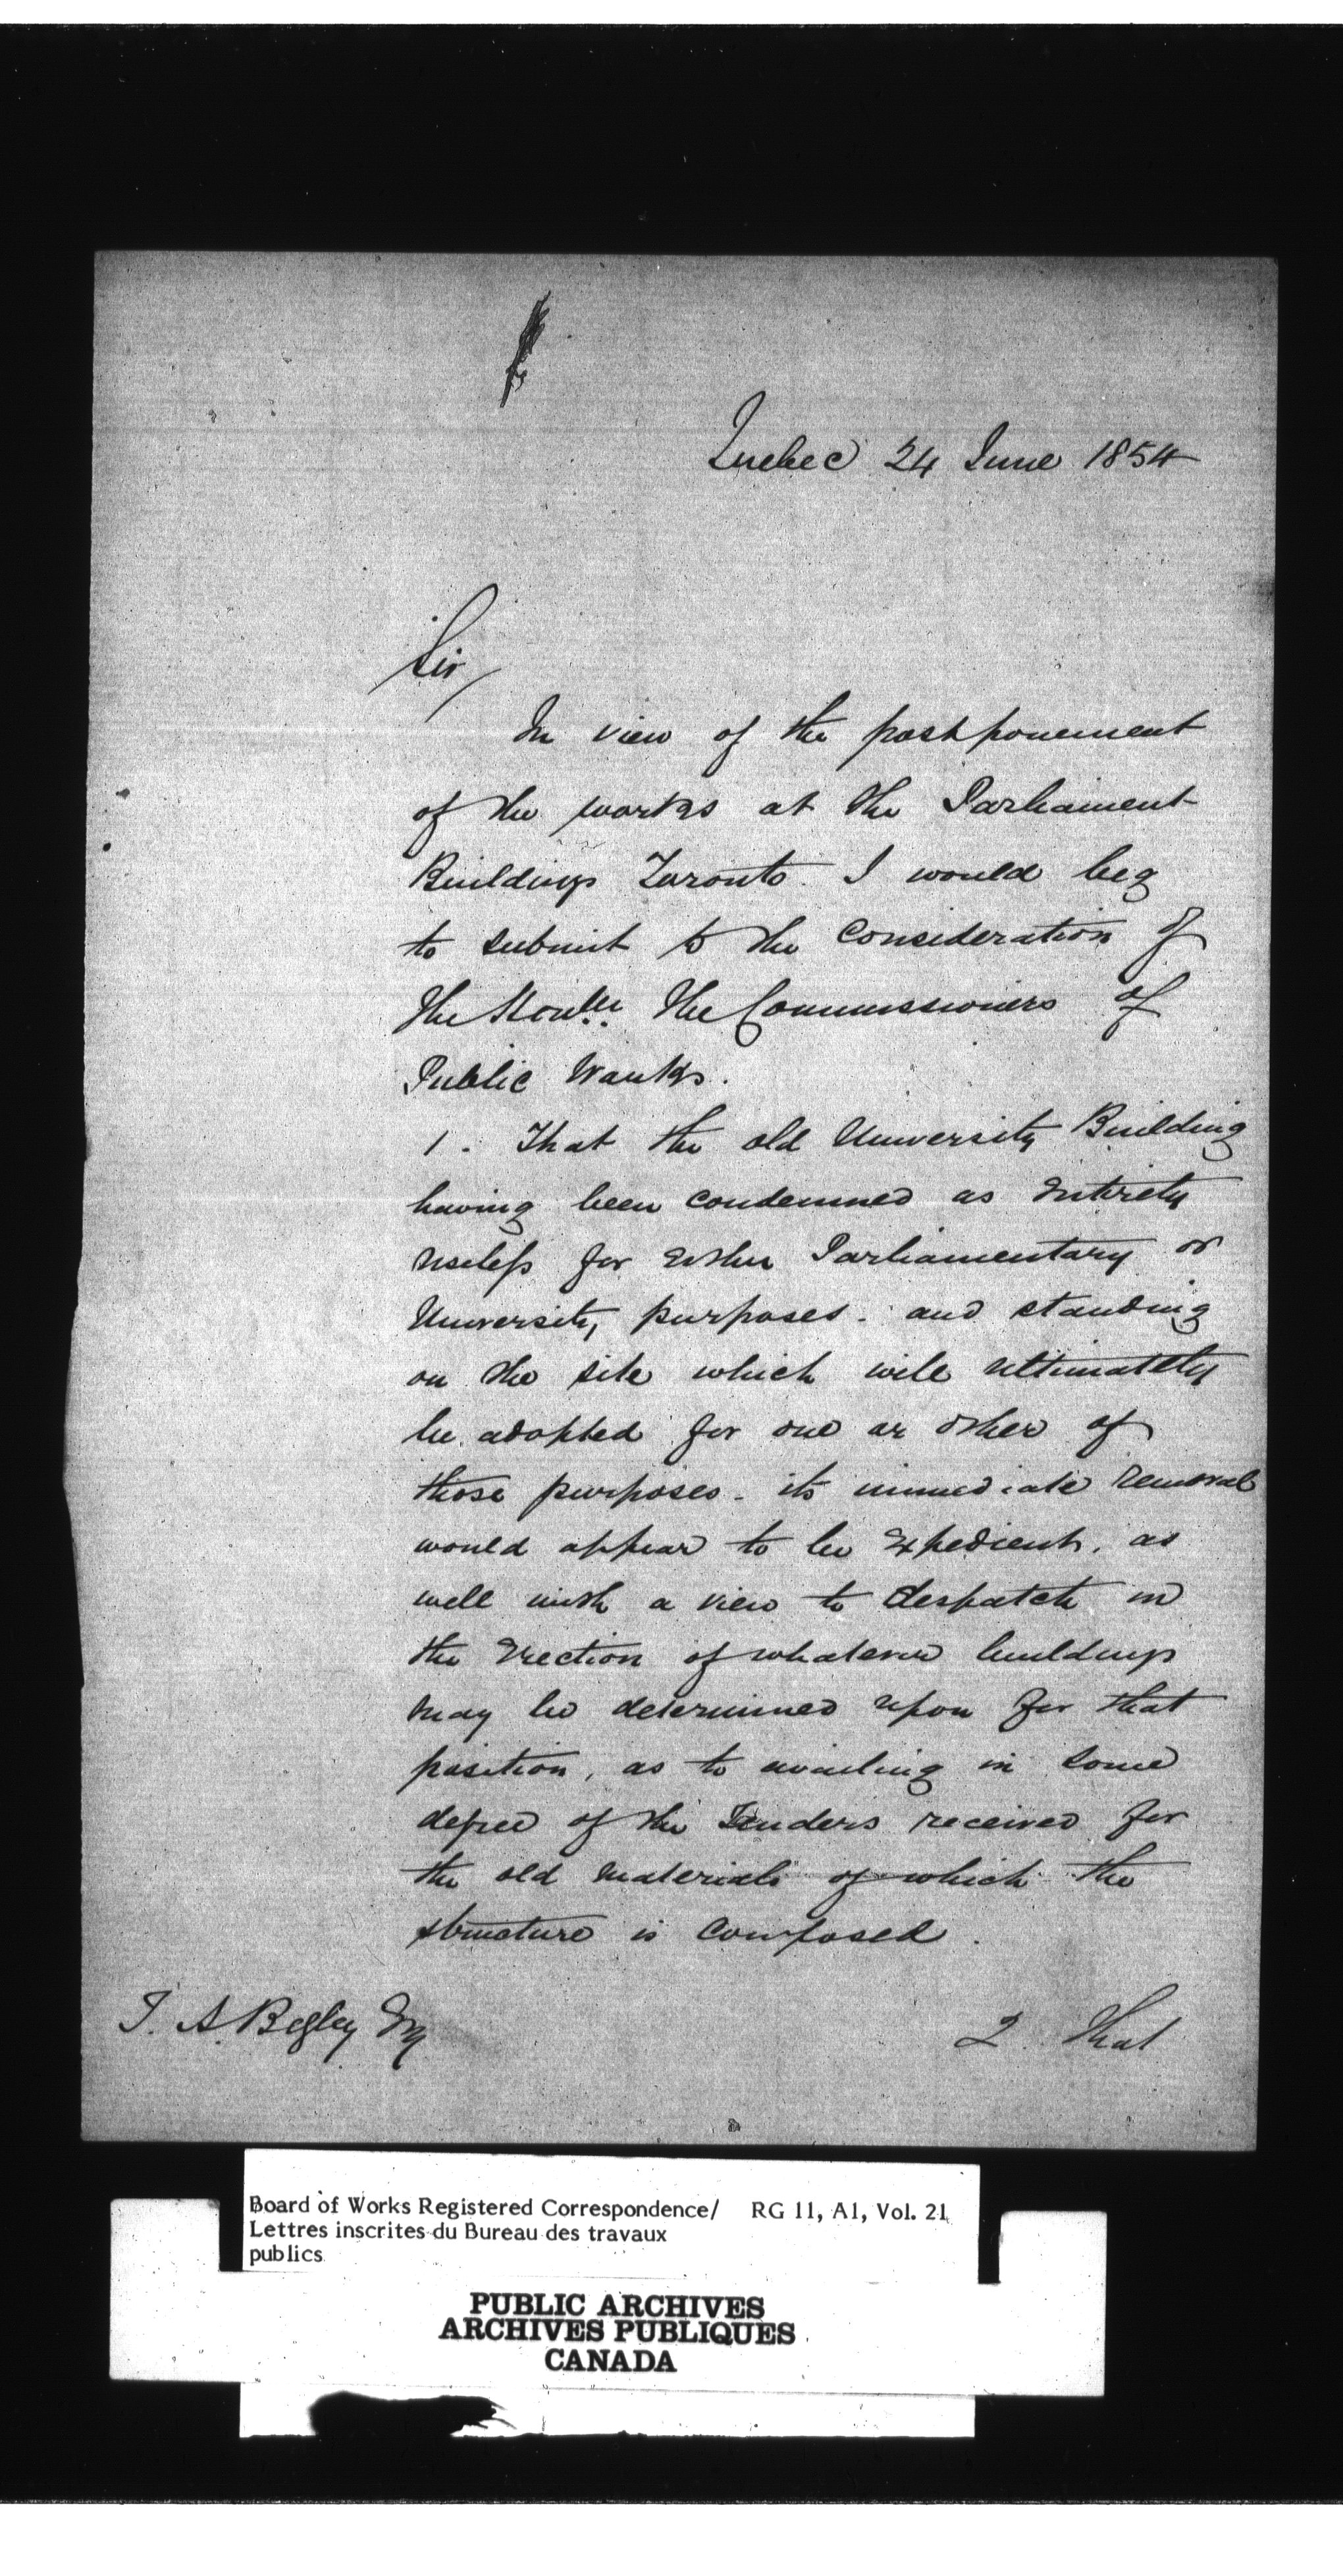 Quebec 24 June 1854
Sir,
In view of the postponement
of the works at the Parliament
Buildings Toronto I would beg
to submit to the consideration of
the Honble. the Commissioners of
Public Works.
1. That the old University Building
having been condemned as entirely
useless for either Parliamentary or
University purposes. and standing
on the site which will ultimately
be adopted for one or other of
those purposes - its immediate removal
would appear to be expedient, as
well with a view to despatch in
the erection of whatever buildings
may be determined upon for that
position, as to availing in some
degree of the Tenders received for
the old materials of which the
structure is composed.
T. A. Begley Esq
2. That
Board of Works Registered Correspondence/ RG 11, A1, Vol. 21
Lettres inscrites du Bureau des travaux
publics
PUBLIC ARCHIVES
ARCHIVES PUBLIQUES
CANADA